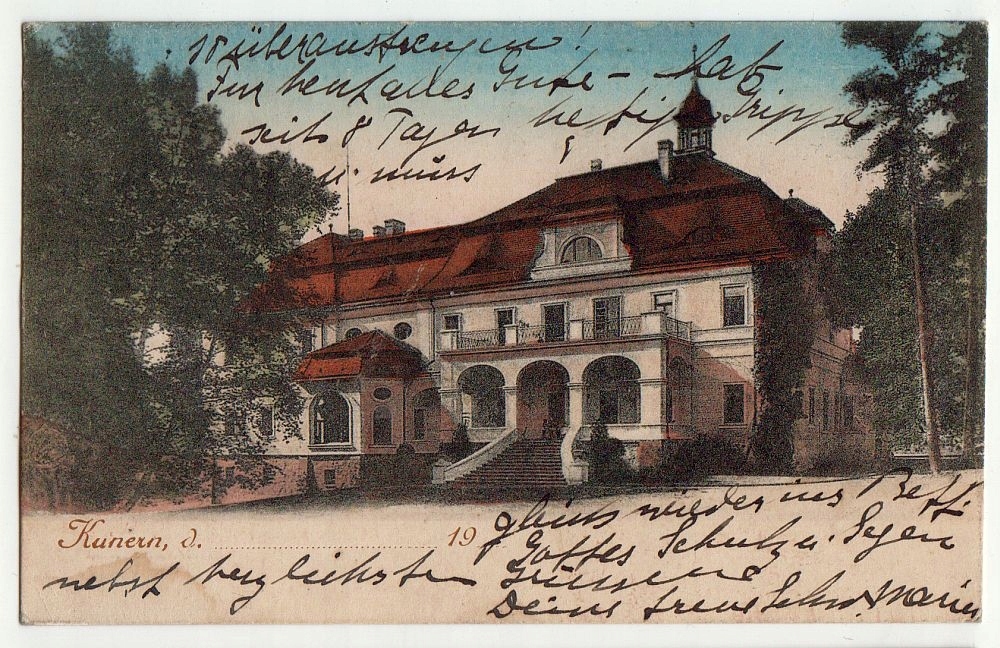 überanstrengen!
Für heut alles Gute – hab
seit 8 Tagen heftig Grippe
u. muss
gleich wieder ins Bett.
Kunern, d. 19
Gottes Schutz u. Segen
nebst herzlichsten Grüssen
Deine treue Schw. Marie